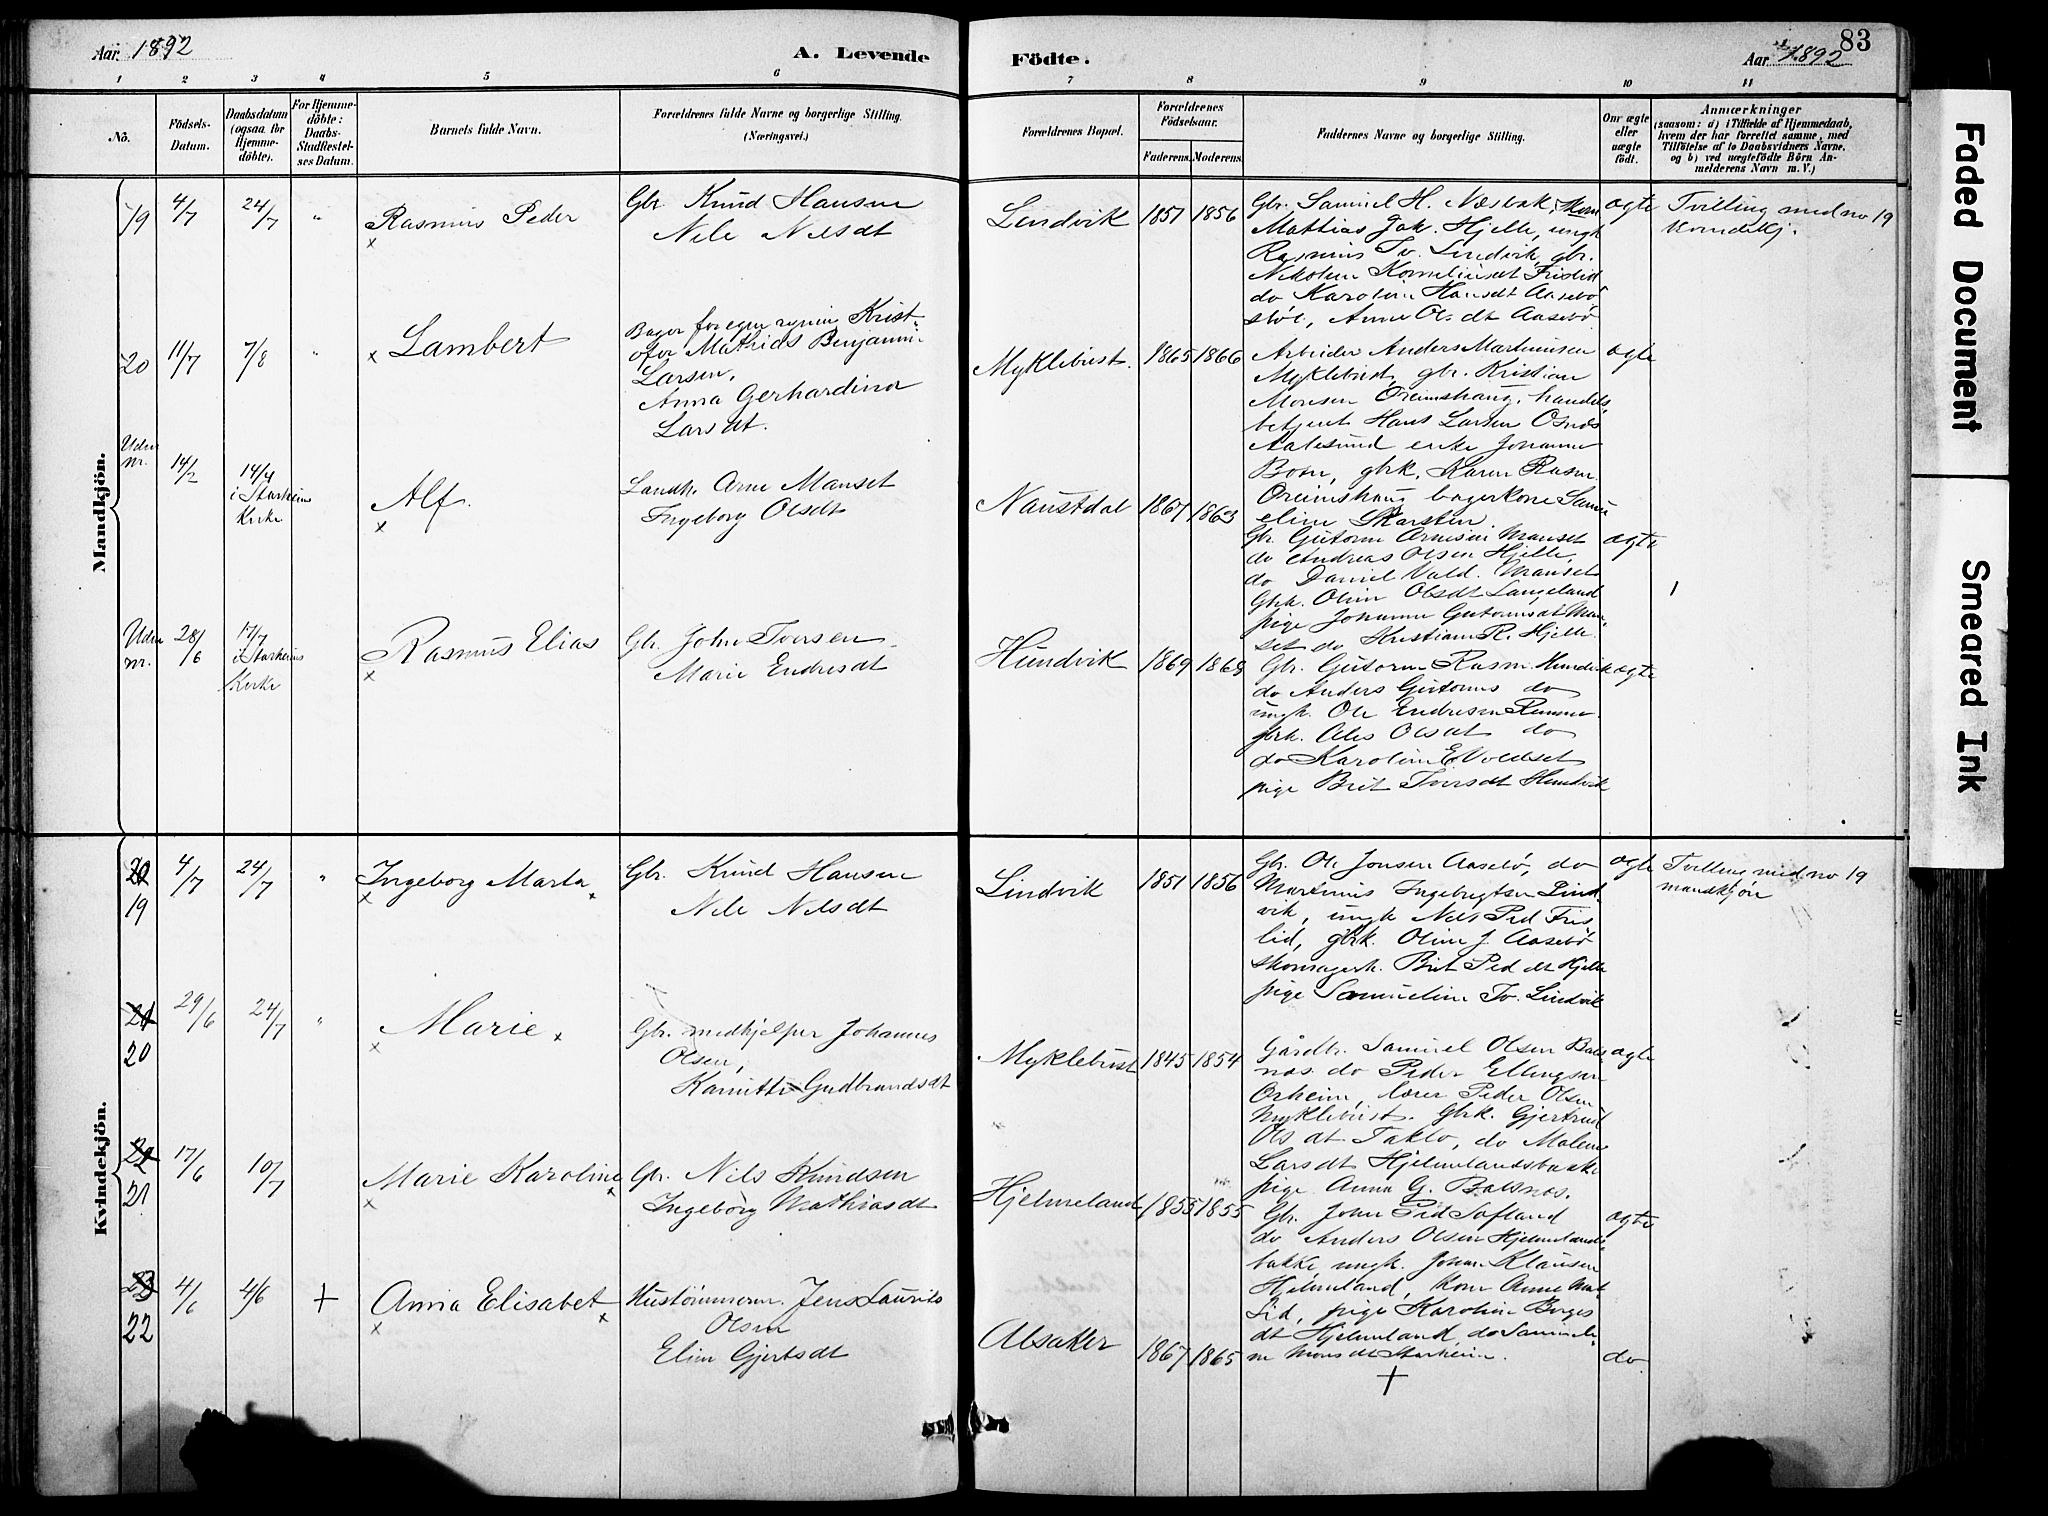 Aar 1892
A. Levende
Födte.
Aar 1892
83
1 2 3 4 5 6 7 8 9 10 11
No.
Födsels-Datum.
Daabsdatum (ogsaa for Hjemmedöbte).
For Hjemmedöbte: Daabs-Stadfæstelses Datum.
Barnets fulde Navn.
Forældrenes fulde Navne og borgerlige Stilling. (Næringsvei.)
Forældrenes Bopæl.
Forældrenes Födselsaar.
Faderens. Moderens.
Faddernes Navne og borgerlige Stilling.
Om ægte eller uægte födt.
Anmærkninger
(saasom: a) i Tilfælde af Hjemmedaab, hvem der har forrettet samme, med Tilföielse af to Daabsvidners Navne, og b) ved uægtefödte Börn Anmelderens Navn m. V.)
Mandkjön.
19 4/7 24/7 " Rasmus Peder
Gbr. Knud Hansen
Nele Nelsdt
Lindvik 1851 1856
Gbr. Samuel H. Næsbak,
Mathias Jak. Hjelle, ungk
Rasmus Iv. Lindvik, gbr.
Nikoline Korneliusdt Frislid
do Karoline Hansdt Aasebö
stöl, Anne Olsdt Aasebö
ægte
Tvilling med no 19
kvindekj.
20 11/7 7/8 " Lambert
Bager for egen regning Krist-
ofer Mathias Benjamin
Larsen,
Anna Gerhardina
Larsdt.
Myklebust. 1865 1866
Arbeider Anders Martinusen
Myklebust, gbr. Kristian
Monsen Oreimshaug, handels
betjent Hans Larsen Osnes
Aalesund enke Johanne
Boen, gbrk. Karen Rasm.
Oreimshaug bagerkone Samu
eline Skarsten.
ægte
Uden nr. 14/2 14/4 i Starheims Kirke Alf.
Landh. Arne Manset
Ingeborg Olsdt
Naustdal 1867 1863
Gbr. Gutorm Arnesen Manset
do Andreas Olsen Hjelle,
do Daniel Vald. Manset
Gbrk. Oline Olsdt Langeland
pige Johanne Gutormsdt Man
set do Kristiane R. Hjelle
ægte
Uden nr. 28/6 17/7 i Starheims Kirke Rasmus Elias
Gbr. John Iversen
Marie Endresdt
Hundvik 1869 1865
Gbr. Gutorm Rasm. Hundvik
do Anders Gutorms do
ungk. Ole Endresen
gbrk. Ales Olsdt do
do Karoline E Voldset
pige Brit Iversdt Hundvik
ægte
Kvindekjön.
20 19 4/7 24/7 " Ingeborg Marta
Gbr. Knud Hansen
Nele Nelsdt
Lindvik 1851 1856
Gbr. Ole Jonsen Aasebö, do
Martinus Ingebrigtsen Lind-
vik, ungk Nels Ped Fris
lid, gbrk. Oline J. Aasebö
skomagerk. Brit Ped dt Hjelle
pige Samueline Iv. Lindvik
ægte
Tvilling med no 19
mandkjön
21 20 29/6 24/7 " Marie
Gbr. medhjelper Johannes
Olsen,
Gudbrandsdt
Myklebust 1845 1854
Gårdbr. Samuel Olsen Bals
næs. do Peder Ellingsen
Orheim, lærer Peder Olsen
Myklebust. Gbrk. Gjertrud
Olsdt Taklo, do Malene
Larsdt Hjelmelandsbakke
pige Anna G. Balsnæs.
ægte
22 21 17/6 10/7 Marie Karoline
Gbr. Nils Knudsen
Ingeborg Mathiasdt
Hjelmeland 1855 1855
Gbr. John Ped Sofland
do Anders Olsen Hjelmelands
bakke ungk. Johan Klausen
Hjelmeland, kone Anne Mat
Lid, pige Karoline Börges
dt Hjelmeland do Samueli
ne Monsdt Starheim.
ægte
23 22 4/6 4/6 + Anna Elisabet
Hustömmerm. Jens Laurits
Olsen
Eline Gjertsdt
Alsaker 1867 1865
+
do
Faded Document
Smeared Ink